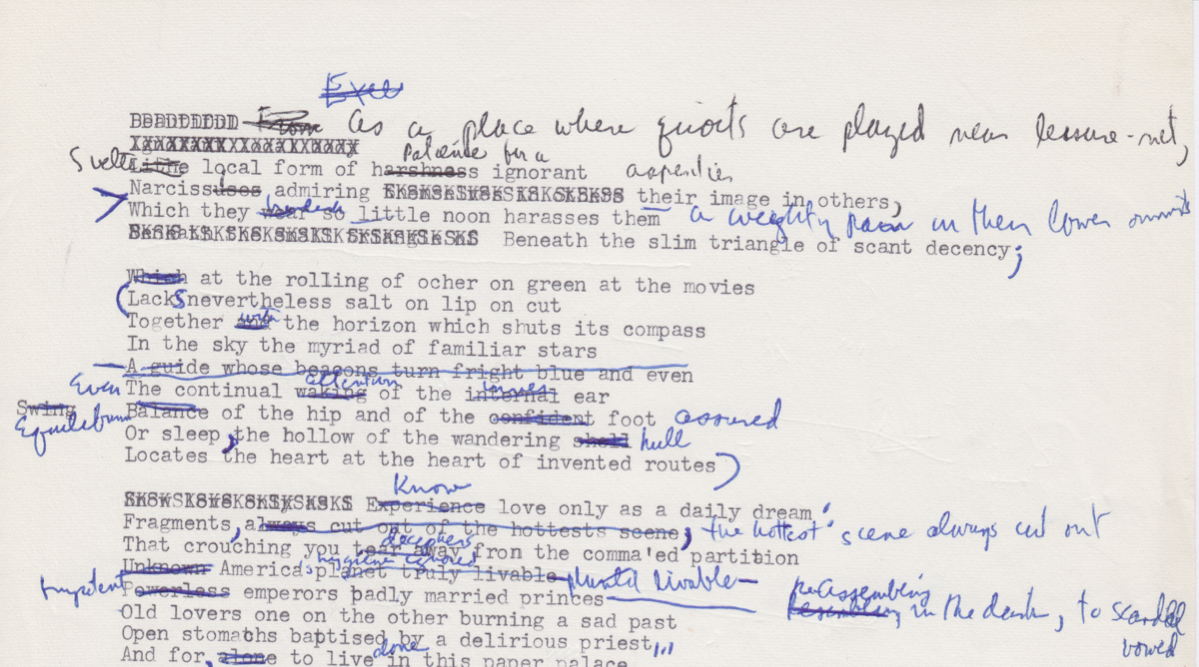 as a place where quoits are played near leisure-net,
patience for a
Svelte Lithe local form of harshness ignorant asperities
Narcissuses admiring their image in others,
Which they wear so little noon harasses them a weighty pain in their lower
Beneath the slim triangle of scant decency;
Which at the rolling of ocher on green at the movies
(Lacks nevertheless salt on lip on cut
with
Together and the horizon which shuts its compass
In the sky the myriad of familiar stars
A guide whose beacons turn fright blue and even
attention
Even The continual waking of the internal ear
Swing Balance of the hip and of the confident foot assured
Equilibrium
Or sleep, the hollow of the wandering shell hull
Locates the heart at the heart of invented routes)
Know
Experience love only as a daily dream
Fragments, always cut out of the hottests scene, the hottest scene always cut out
deciphers
That crouching you tear away fron the comma'ed partition
hygiene ignored
Unknown America's planet truly livable- planet livable-
Impotent Powerless emperors badly married princes
reassembling in the dark, to scandal
vowed
Old lovers one on the other burning a sad past
Open stomachs baptised by a delirious priest,
alone
And for, alone to live in this paper palace